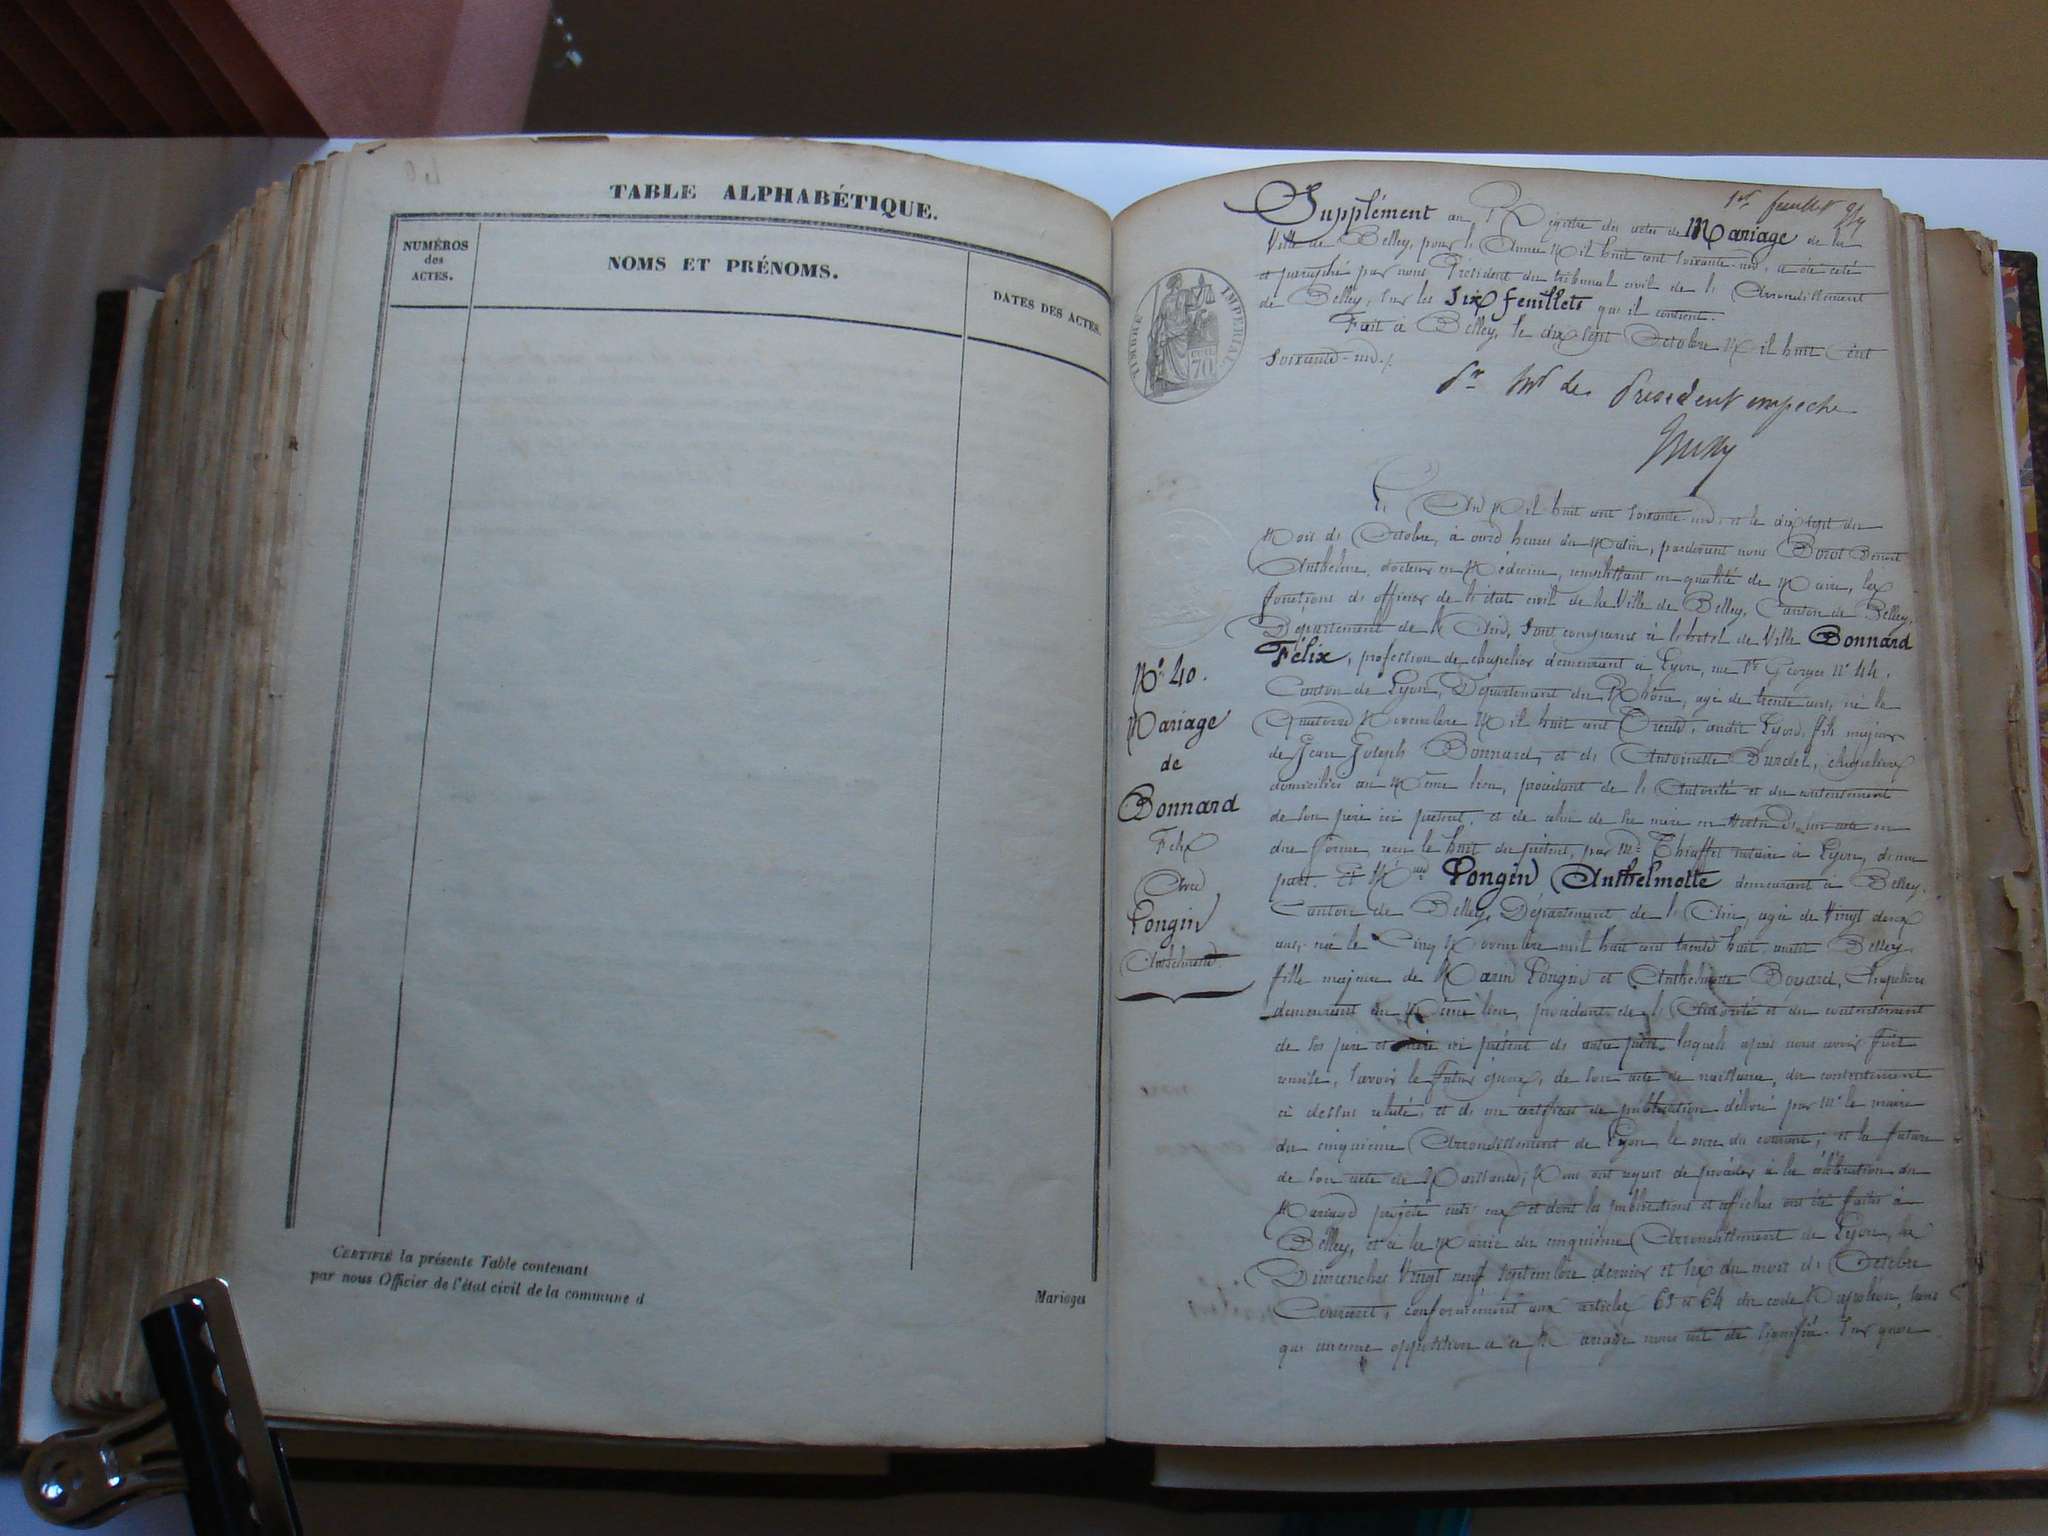 TABLE ALPHABÉTIQUE.
NUMÉROS
des
ACTES.
NOMS ET PRÉNOMS.
DATES DES ACTES.
CERTIFIÉ la présente Table contenant
par nous Officier de l'état civil de la commune d
Mariages
1er feuillet
Supplément au Régistre des actes de Mariage de la
Ville de Belley, pour l'Année Mil huit cent soixante-un, a été coté
et paraphé par nous Président du tribunal civil de l'Arrondissement
de Belley, sur les Six feuillets qu'il contient.
Fait à Belley, le dix sept Octobre Mil huit cent
soixante-un.
TIMBRE IMPÉRIAL
70
Pr Mr le Président empêché
L'An Mil huit cent soixante-un, et le dix sept du
Mois d'Octobre, à onze heures du Matin, pardevant nous Borot Benoit
Anthelme, docteur en Médecine, remplissant en qualité de Maire, les
fonctions d'officier de l'état civil de la Ville de Belley, Canton de Belley,
Département de l'Ain, sont comparus à l'hôtel de Ville Bonnard
Félix, profession de chapelier demeurant à Lyon, rue St Georges N° 44.
Canton de Lyon, Département du Rhône, agé de trente ans, né le
Quatorze Novembre Mil huit cent Trente, audit Lyon, fils majeur
de Jean Joseph Bonnard, et d'Antoinette Burdel, chapeliers
domiciliés au Même lieu, procédant de l'Autorité et du consentement
de son père ici présent, et de celui de sa mère en vertu d'un acte en
due forme, reçu le huit du présent, par Me notaire à Lyon, d'une
part. Et Mlle Pongin Anthelmette demeurant à Belley,
Canton de Belley, Département de l'Ain, agée de Vingt deux
ans, née le Cinq Novembre mil huit cent trente huit audit Belley,
fille majeure de Marin Pongin et Anthelmette Boyard, Chapeliers
demeurant au Même lieu, procédant de l'Autorité et du consentement
de ses père et mère ici présent d'autre part. lesquels après nous avoir fait
remise, savoir le futur époux, de son acte de naissance, du consentement
ci dessus relaté, et d'un certificat de publication délivré par Mr le maire
du cinquième Arrondissement de Lyon le onze du courant; et la future
de son acte de Naissance; Nous ont requis de procéder à la célébration du
Mariage projeté entr'eux et dont les publications et affiches ont été faites à
Belley, et à la Mairie du cinquième Arrondissement de Lyon, les
Dimanches Vingt neuf septembre dernier et six du mois d'Octobre
Courant, conformément aux articles 63 et 64 du code Napoléon, sans
que aucune opposition à ce Mariage nous ait été signifiée. Sur quoi
N° 40.
Mariage
de
Bonnard
Félix
Avec
Pongin
Anthelmette